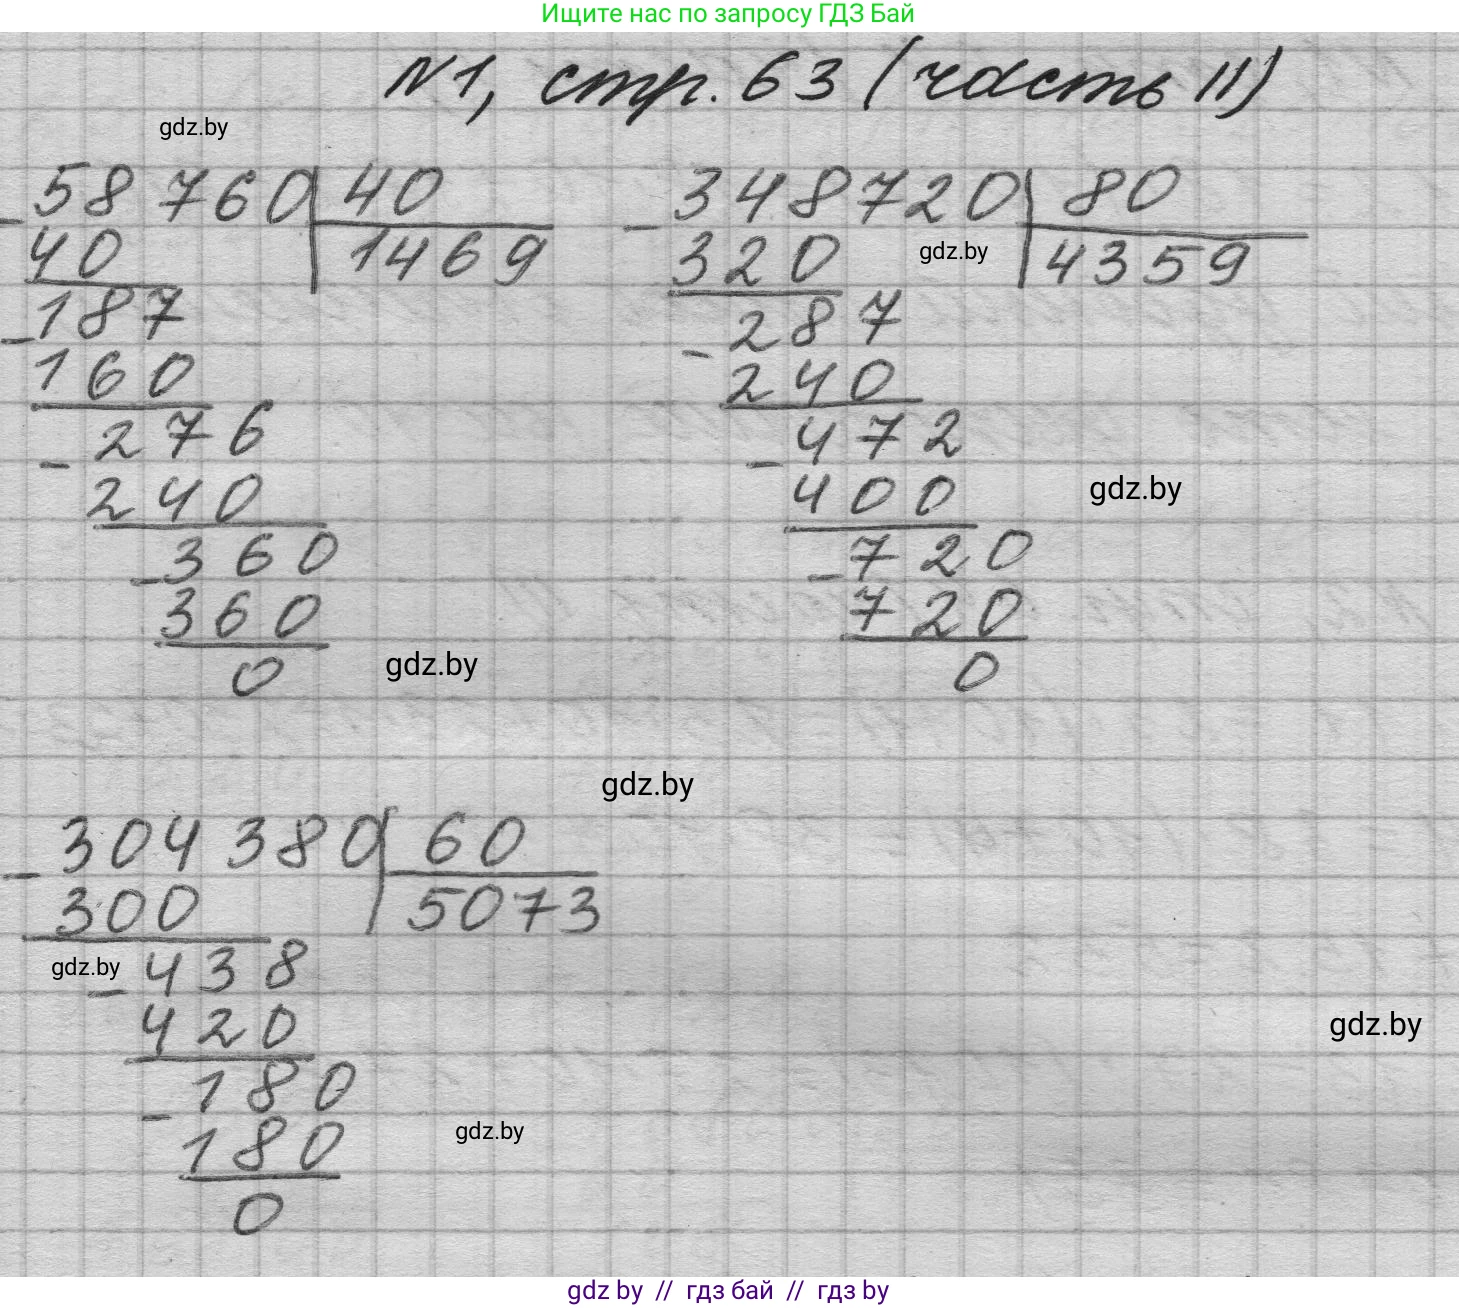 Ищите нас по запросу ГДЗ Бай
№1, стр. 63 (часть II)
gdz.by
58 760 40
- 40 1469
187
- 160
276
- 240
360
- 360
0
348720 80
- 320 4359
gdz.by
287
- 240
472
- 400
720
- 720
0
gdz.by
gdz.by
gdz.by
304 380 60
- 300 5073
gdz.by
438
- 420
180
- 180
0
gdz.by
gdz.by
gdz by // гдз бай // гдз by